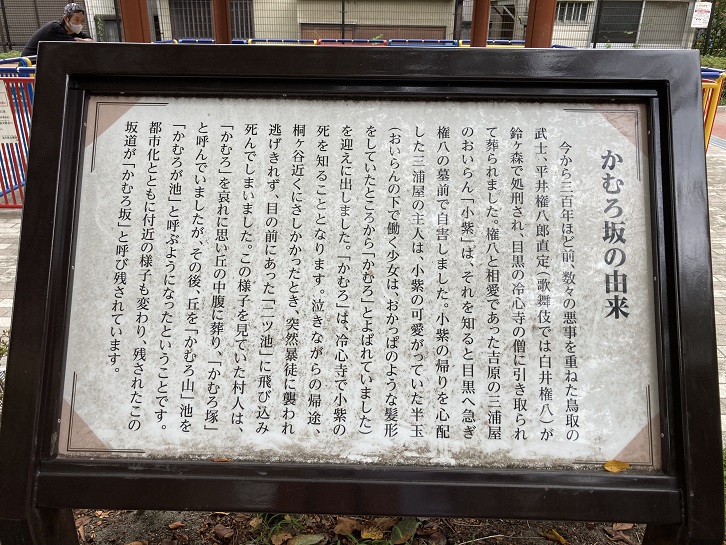 かむろ坂の由来
今から三百年ほど前、数々の悪事を重ねた鳥取の
武士、平井権八郎直定(歌舞伎では白井権八)が
鈴ヶ森で処刑され、目黒の冷心寺の僧に引き取られ
て葬られました。権八と相愛であった吉原の三浦屋
のおいらん「小紫」は、それを知ると目黒へ急ぎ
権八の墓前で自害しました。小紫の帰りを心配
した三浦屋の主人は、小紫の可愛がっていた半玉
(おいらんの下で働く少女は、おかっぱのような髪形
をしていたところから「かむろ」とよばれていました)
を迎えに出しました。「かむろ」は、冷心寺で小紫の
死を知ることとなります。泣きながらの帰途、
桐ヶ谷近くにさしかかったとき、突然暴徒に襲われ
逃げきれず、目の前にあった「二ツ池」に飛び込み
死んでしまいました。この様子を見ていた村人は、
「かむろ」を哀れに思い丘の中腹に葬り、「かむろ塚」
と呼んでいましたが、その後、丘を「かむろ山」池を
「かむろが池」と呼ぶようになったということです。
都市化とともに付近の様子も変わり、残されたこの
坂道が「かむろ坂」と呼び残されています。